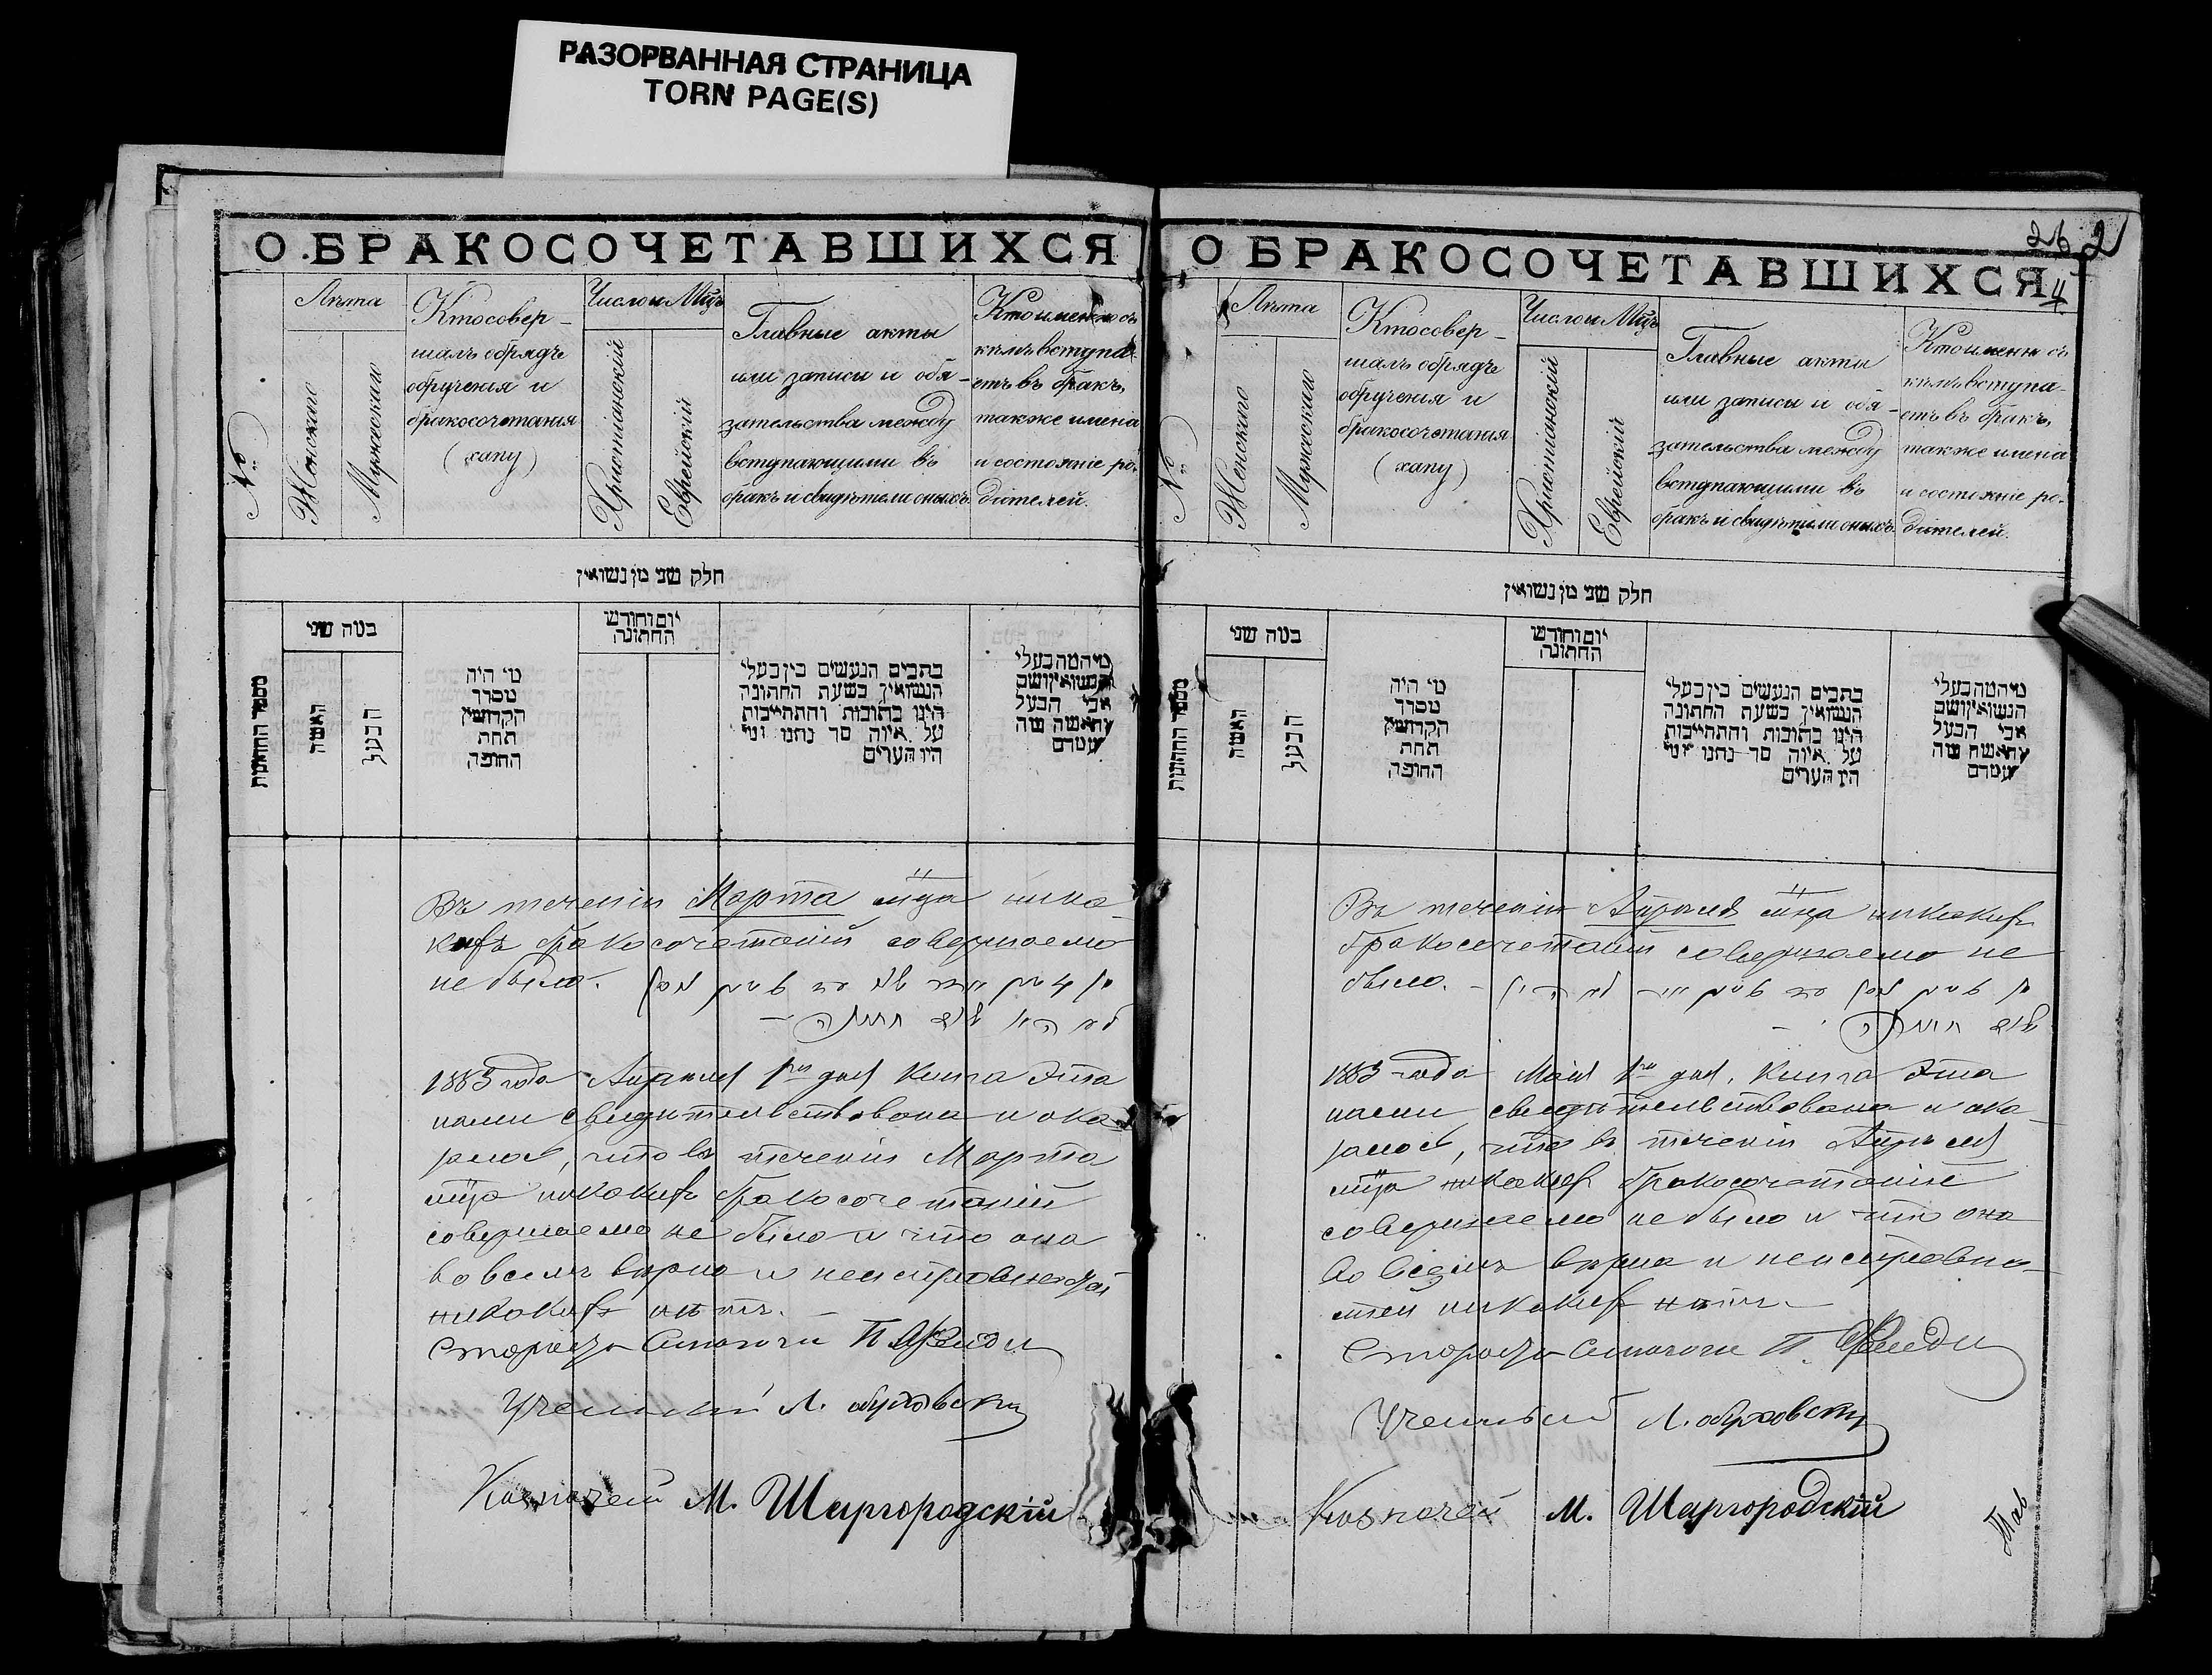 РАЗОРВАННАЯ СТРАНИЦА
TORN PAGE(S)
О БРАКОСОЧЕТАВШИХСЯ
№
Лѣта
Женскаго
Мужескаго
Кто совер-
шалъ обрядъ
обрученія и
бракосочетанія
(хапу)
Число и Мцъ
Христіанскій
Еврейскій
Главные акты
или записи и обя-
зательства между
вступающими въ
бракъ и свидѣтели оныхъ.
Кто именно съ
кѣмъ вступа-
етъ въ бракъ,
также имена
и состояніе ро-
дителей.
חלק שני מן נשואין
מספר החתונות
כמה שני
האשה
הבעל
מי היה
מסדר
הקדושין
תחת
החופה
יום וחודש
החתונה
כתבים הנעשים בין בעלי
הנשואין בשעת החתונה
היינו כתובות והתחייבות
על איזה סך נתנו ומי
היו העדים
מי המה בעלי
הנשואין ושם
אבי הבעל
והאשה ומה
מעמדם
Въ теченіи Марта мца ника-
кихъ бракосочетаній совершаемо
не было.
1883 года Апрѣля 1го дня книга эта
нами свидѣтельствована и ока-
залось, что въ теченіи Марта
мца никакихъ бракосочетаній
совершаемо не было и что она
во всемъ вѣрна и неисправностей
никакихъ нѣтъ.
Староста Синагоги П.
Ученый Л. Обуховскій
Казначей М. Шаргородскій
26 2
4
О БРАКОСОЧЕТАВШИХСЯ
№
Лѣта
Женскаго
Мужескаго
Кто совер-
шалъ обрядъ
обрученія и
бракосочетанія
(хапу)
Число и Мцъ
Христіанскій
Еврейскій
Главные акты
или записи и обя-
зательства между
вступающими въ
бракъ и свидѣтели оныхъ.
Кто именно съ
кѣмъ вступа-
етъ въ бракъ,
также имена
и состояніе ро-
дителей.
חלק שני מן נשואין
מספר החתונות
כמה שני
האשה
הבעל
מי היה
מסדר
הקדושין
תחת
החופה
יום וחודש
החתונה
כתבים הנעשים בין בעלי
הנשואין בשעת החתונה
היינו כתובות והתחייבות
על איזה סך נתנו ומי
היו העדים
מי המה בעלי
הנשואין ושם
אבי הבעל
והאשה ומה
מעמדם
Въ теченіи Апрѣля мца никакихъ
бракосочетаній совершаемо не
было.
1883 года Мая 1го дня, книга эта
нами свидѣтельствована и ока-
залось, что въ теченіи Апрѣля
мца никакихъ бракосочетаній
совершаемо не было и что она
во всемъ вѣрна и неисправно-
стей никакихъ нѣтъ.
Староста Синагоги П.
Ученый Л. Обуховскій
Казначей М. Шаргородскій